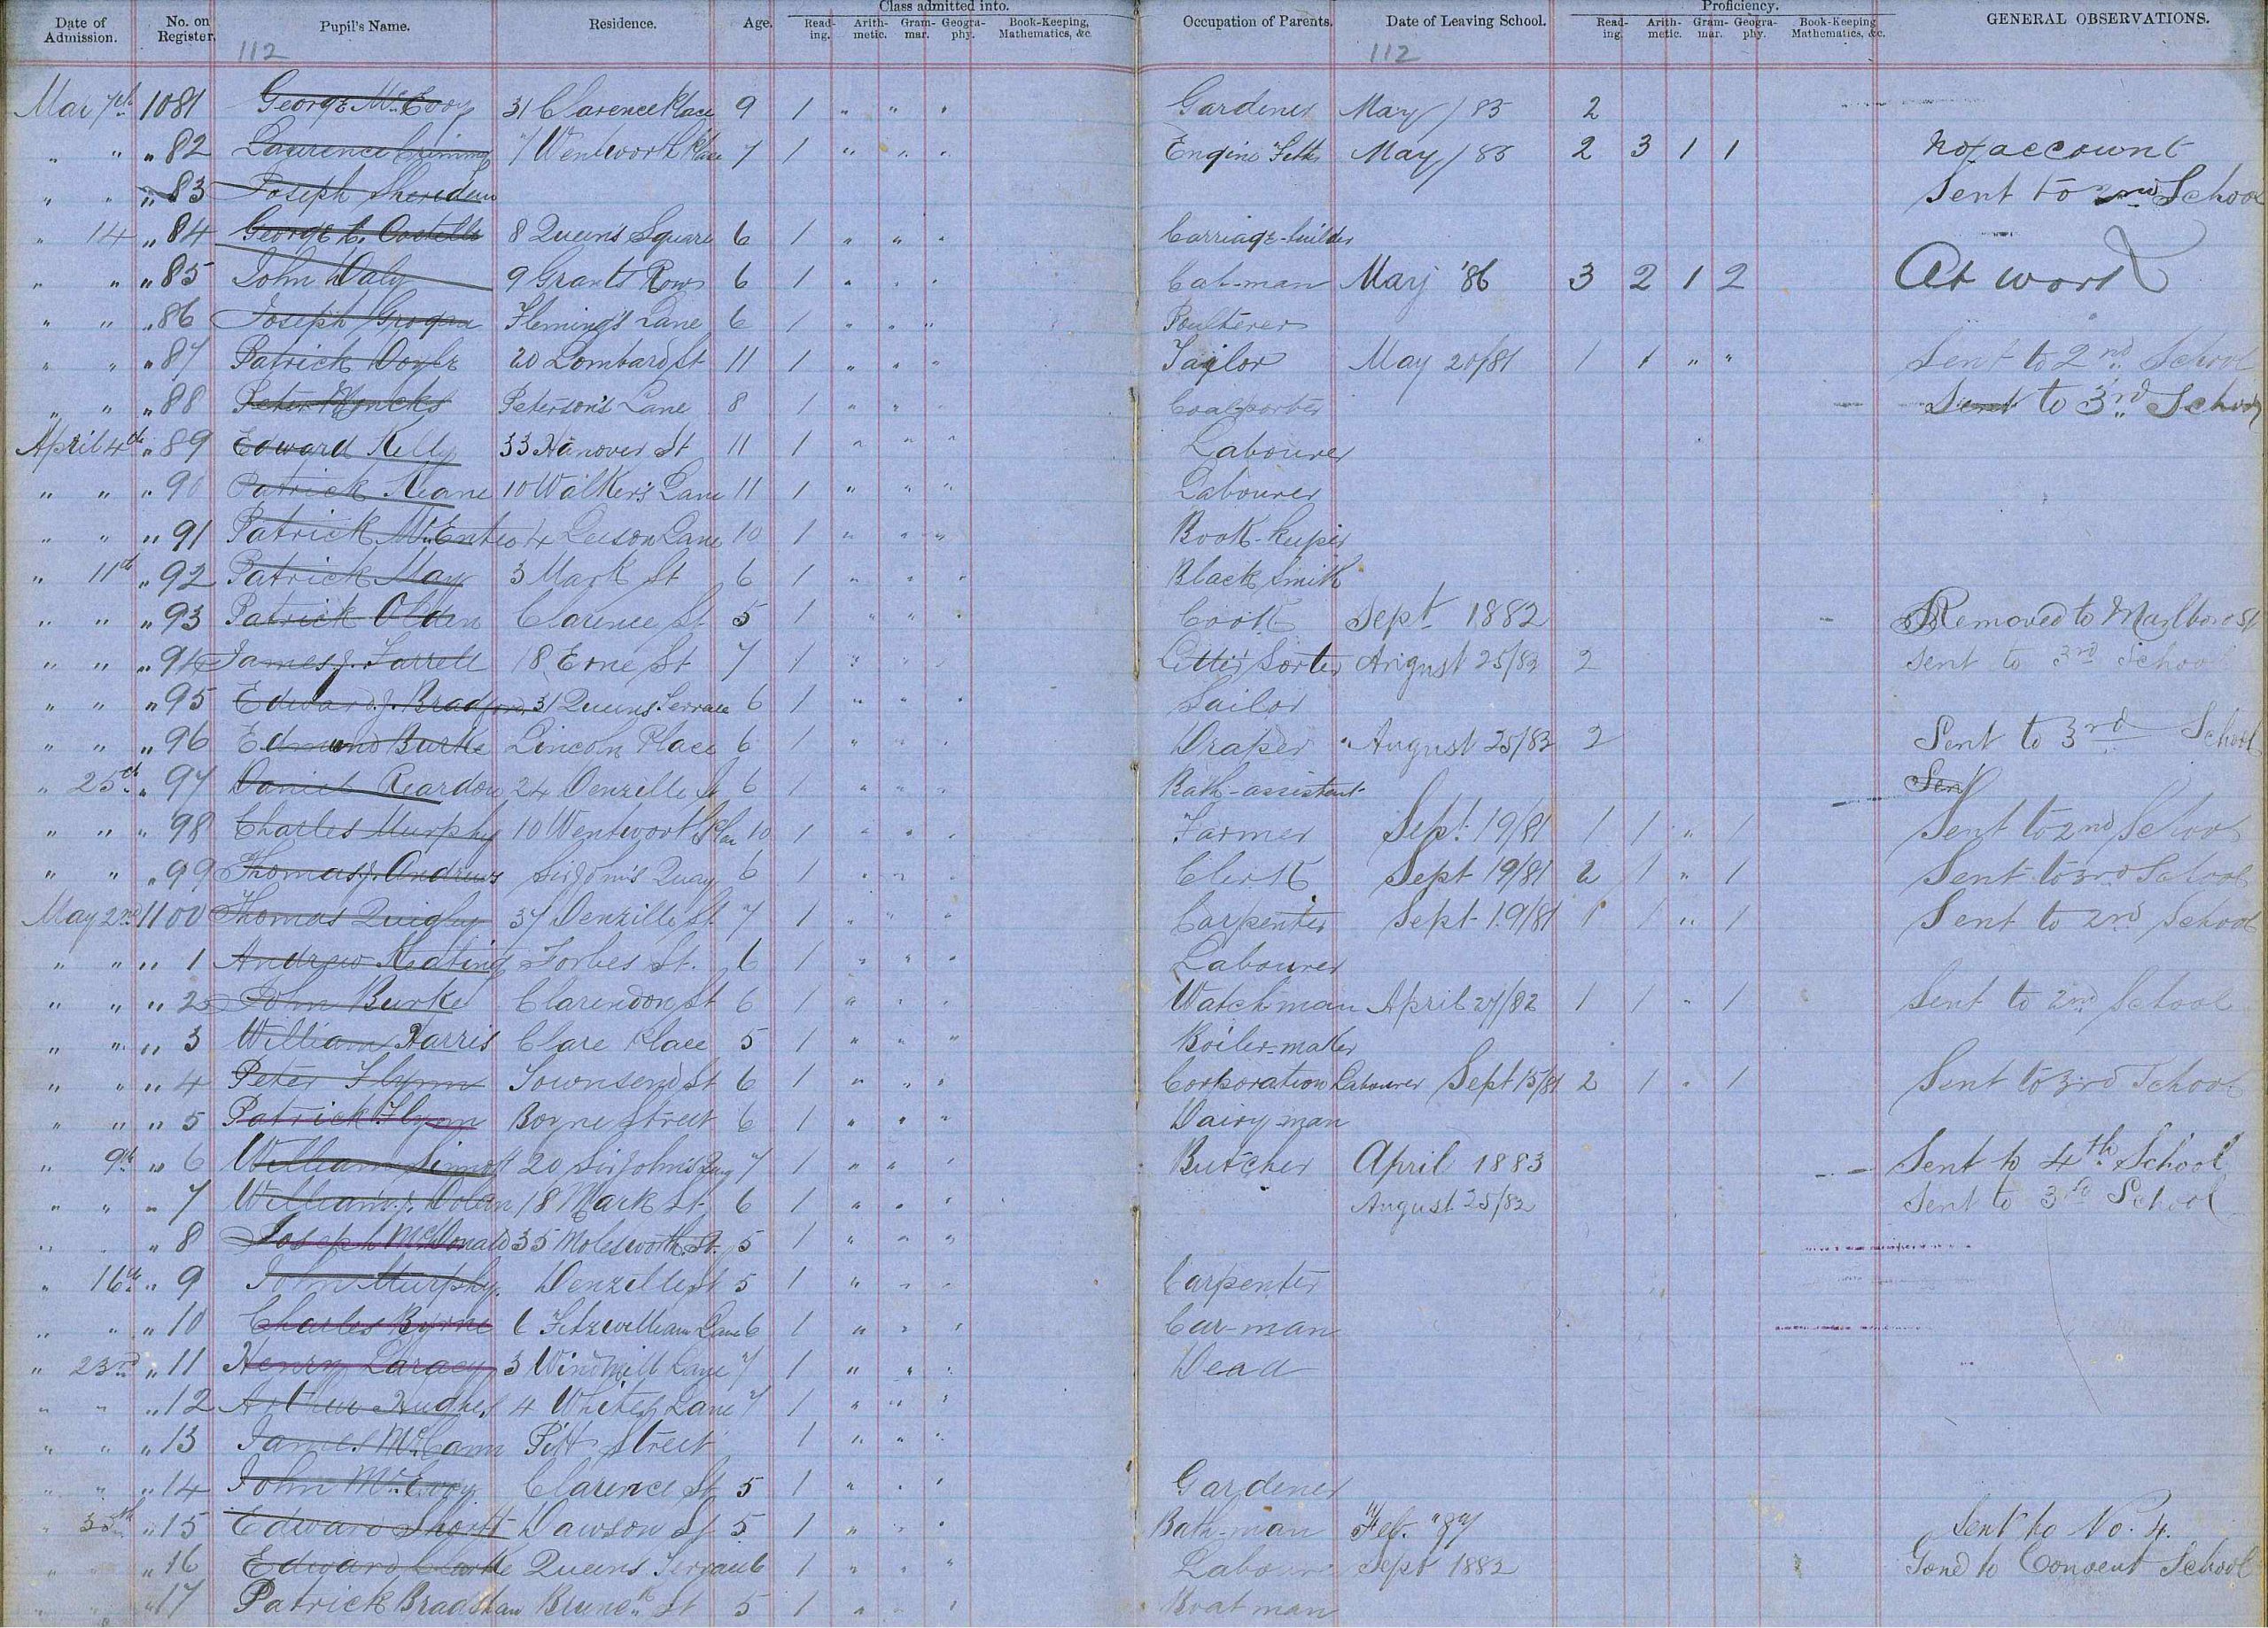 Date of Admission. No. on Register. Pupil's Name. Residence. Age. Class admitted into. Reading. Arithmetic. Grammar. Geography. Book-Keeping, Mathematics, &c. Occupation of Parents. Date of Leaving School. Proficiency. Reading. Arithmetic. Grammar. Geography. Book-Keeping Mathematics, &c. GENERAL OBSERVATIONS.
112 112
Mar 7th 1081 George McEvoy 31 Clarence Place 9 1 " " " Gardener May / 85 2
" " " 82 Laurence Crimmy 7 Wentworth Place 7 1 " " " Engine Fitter May / 85 2 3 1 1 No account
" " " 83 Joseph Sheridan Sent to 2nd School
" 14 " 84 George C. Costello 8 Queens Square 6 1 " " " Carriage-builder
" " " 85 John Daly 9 Grants Row 6 1 " " " Cab-man May '86 3 2 1 2 At work
" " " 86 Joseph Grogan Fleming's Lane 6 1 " " " Poulterer
" " " 87 Patrick Doyle 20 Lombard St 11 1 " " " Tailor May 20/81 1 1 " " Sent to 2nd School
" " " 88 Peter Hencks Peterson's Lane 8 1 " " " Coalporter Sent to 3rd School
April 4th " 89 Edward Kelly 33 Hanover St 11 1 " " " Labourer
" " " 90 Patrick Keane 10 Walker's Lane 11 1 " " " Labourer
" " " 91 Patrick McEntee 4 Leeson Lane 10 1 " " " Book-keeper
" 11th " 92 Patrick May 3 Mark St 6 1 " " " Black Smith
" " " 93 Patrick Olden Clarence St 5 1 " " " Cook Sept 1882 Removed to Marlboro St
" " " 94 James J. Farrell 18 Erne St 7 1 " " " Letter Sorter August 25/82 2 Sent to 3rd School
" " " 95 Edward J. Bradford 31 Queens Terrace 6 1 " " " Sailor
" " " 96 Edmund Burke Lincoln Place 6 1 " " " Draper August 25/82 2 Sent to 3rd School
" 25th " 97 Daniel Reardon 24 Denzille St 6 1 " " " Bath-assistant Sent
" " " 98 Charles Murphy 10 Wentworth Place 10 1 " " " Farmer Sept 19/81 1 1 " 1 Sent to 2nd School
" " " 99 Thomas J. Andrews Sir John's Quay 6 1 " " " Clerk Sept 19/81 2 1 " 1 Sent to 3rd School
May 2nd 1100 Thomas Quigley 37 Denzille St 7 1 " " " Carpenter Sept 19/81 1 1 " 1 Sent to 2nd School
" " " " 1 Andrew Keating Forbes St. 6 1 " " " Labourer
" " " " 2 John Burke Clarendon St 6 1 " " " Watchman April 27/82 1 1 " 1 Sent to 2nd School
" " " " 3 William Harris Clare Place 5 1 " " " Boiler-maker
" " " " 4 Peter Flynn Townsend St 6 1 " " " Corporation Labourer Sept 15/81 2 1 " 1 Sent to 3rd School
" " " " 5 Patrick Flynn Boyne Street 6 1 " " " Dairy man
" 9th " 6 William Sinnott 20 Sir John's Quay 7 1 " " " Butcher April 1883 Sent to 4th School
" " " 7 William J. Dolan 18 Mark St 6 1 " " " August 25/82 Sent to 3rd School
" " " 8 Joseph McDonald 35 Molesworth St. 5 1 " " "
" 16th " 9 John Murphy Denzille St 5 1 " " " Carpenter
" " " 10 Charles Byrne 6 Fitzwilliam Lane 6 1 " " " Car-man
" 23rd " 11 Henry Laracy 3 Windmill Lane 7 1 " " " Dead
" " " 12 Arthur Hughes 4 White's Lane 7 1 " " "
" " " 13 James McCann Pitt Street 1 " " "
" " " 14 John McEvoy Clarence St 5 1 " " " Gardener
" " 15 Edward Shortt Dawson St 5 1 " " " Bath-man Feb. "87 Sent to No. 4.
" " " 16 Edward Clarke Queens Terrace 6 1 " " " Labourer Sept 1882 Gone to Convent School
" " " 17 Patrick Bradshaw St 5 1 " " " Boat man